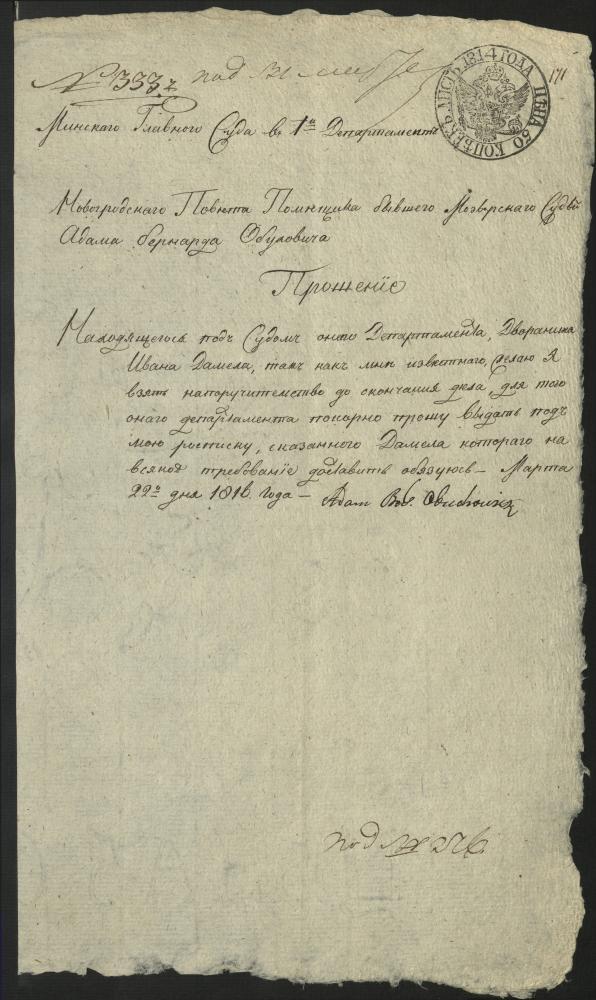 № 333. под
ЛИСТЪ 1814 ГОДА ЦѢНА 50 КОПѢЕКЪ
171
Минскаго Главнаго Суда в 1й Департаментъ
Новогродскаго Повѣта Помѣщика бывшего Мозырскаго Судьи
Адама Бернарда Обуховича
Прошеніе
Находящегося подъ Судомъ онаго Департамента, Дворанина
Ивана Дамела, такъ какъ мнѣ извѣстнаго, желаю Я
взять на поручительство до окончания дѣла, для того
онаго департамента покорно прошу выдать подъ
мою росписку, сказанного Дамела котораго на
всякое требованіе доставить обязуюсь — Марта
22го дня 1816. Года —
под